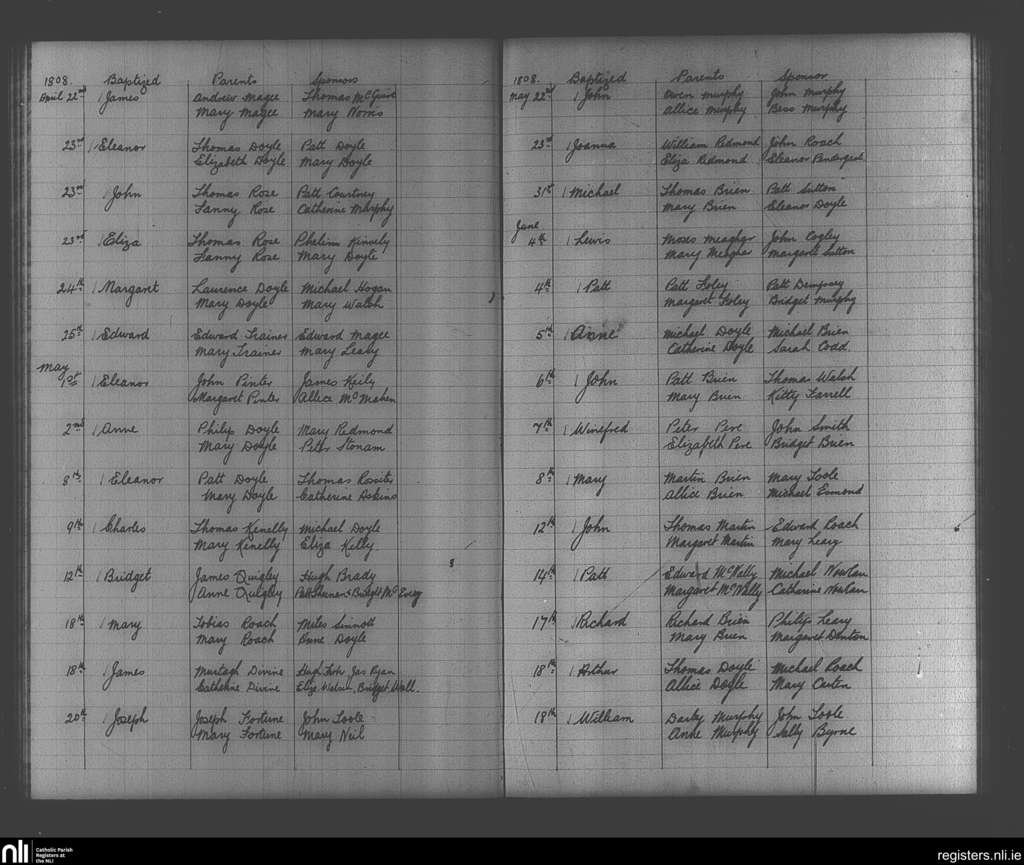 1808. Baptized Parents Sponsors
April 22nd James Andrew Magee Thomas McGuire
Mary Magee Mary Norris
23rd Eleanor Thomas Doyle Patt Doyle
Elizabeth Doyle Mary Doyle
23rd John Thomas Rose Patt Courtney
Fanny Rose Catherine Murphy
23rd Eliza Thomas Rose Phelim Kinnely
Fanny Rose Mary Doyle
24th Margaret Laurence Doyle Michael Hogan
Mary Doyle Mary Walsh
25th Edward Edward Trainer Edward Magee
Mary Trainer Mary Leahy
May
1st Eleanor John Pinter James Keily
Margaret Pinter Allice McMahen
2nd Anne Philip Doyle Mary Redmond
Mary Doyle Peter Stonam
8th Eleanor Patt Doyle Thomas Rositer
Mary Doyle Catherine Askins
9th Charles Thomas Kenelly Michael Doyle
Mary Kenelly Eliza Kelly.
12th Bridget James Quigley Hugh Brady
Anne Quigley Bridget
18th Mary Tobias Roach Miles Sinnott
Mary Roach Anne Doyle
18th James Murtagh Divine Hugh Jas Ryan
Catherine Divine Eliza Bridget Wall.
20th Joseph Joseph Fortune John Toole
Mary Fortune Mary Neil
1808. Baptized Parents Sponsor
May 22nd John Owen Murphy John Murphy
Allice Murphy Bess Murphy
23rd Joanna William Redmond John Roach
Eliza Redmond Eleanor Pendergast
31st Michael Thomas Brien Patt Sutton
Mary Brien Eleanor Doyle
June
4th Lewis Moses Meagher John Cogley
Mary Meagher Margaret Sutton
4th Patt Patt Foley Patt Dempsey
Margaret Foley Bridget Murphy
5th Anne Michael Doyle Michael Brien
Catherine Doyle Sarah Codd.
6th John Patt Brien Thomas Walsh
Mary Brien Kitty Farrell
7th Winefred Peter Pere John Smith
Elizabeth Pere Bridget Brien
8th Mary Martin Brien Mary Toole
Allice Brien Michael Esmond
12th John Thomas Martin Edward Roach
Margaret Martin Mary Leary
14th Patt Edward McNally Michael Nowlan
Margaret McNally Catharine Nowlan
17th Richard Richard Brien Philip Leary
Mary Brien Margaret Denton
18th Arthur Thomas Doyle Michael Roach
Allice Doyle Mary
18th William Darby Murphy John Toole
Anne Murphy Sally Byrne
nli Catholic Parish
Registers at
the NLI
registers.nli.ie